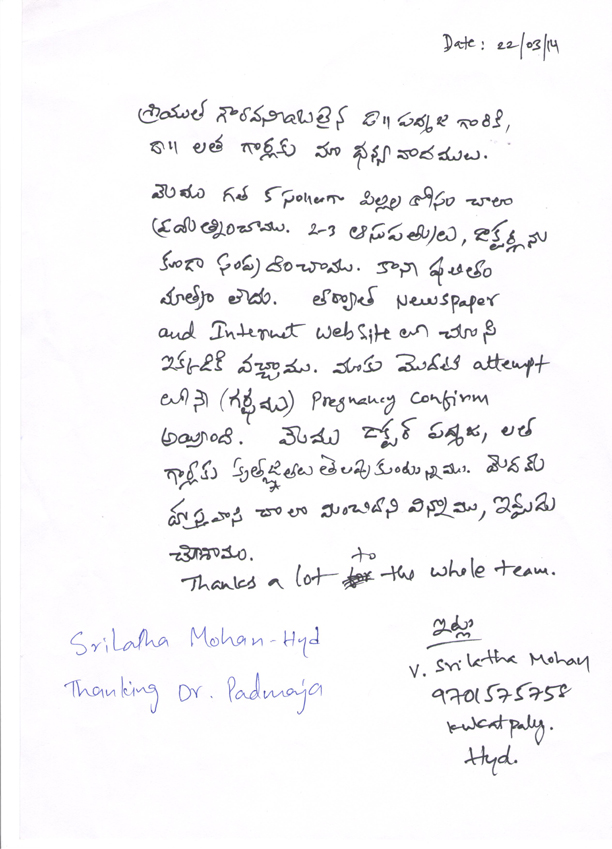 Date: 22/03/14
శ్రీయుత గౌరవనీయులైన డా॥ పద్మజ గారికి,
డా॥ లత గార్లకు మా ధన్యవాదములు.
మేము గత 5 సం॥లుగా పిల్లల కోసం చాలా
ప్రయత్నించాము. 2-3 ఆసుపత్రులు, డాక్టర్లను
కుండా సంప్రదించాము. కాని ఫలితం
మాత్రం లేదు. తర్వాత Newspaper
and Internet website లో చూసి
ఇక్కడికి వచ్చాము. మాకు మొదటి attempt
లోనే (గర్భము) Pregnancy confirm
అయ్యింది. మేము డాక్టర్ పద్మజ, లత
గార్లకు కృతజ్ఞతలు తెలుపుకుంటున్నాము.
హస్తవాసి చాలా మంచిదని విన్నాము, ఇప్పుడు
చూశాము.
Thanks a lot to the whole team.
Srilatha Mohan-Hyd
Thanking Dr. Padmaja
ఇట్లు
V. Srilatha Mohan
9701575758
kukatpaly.
Hyd.